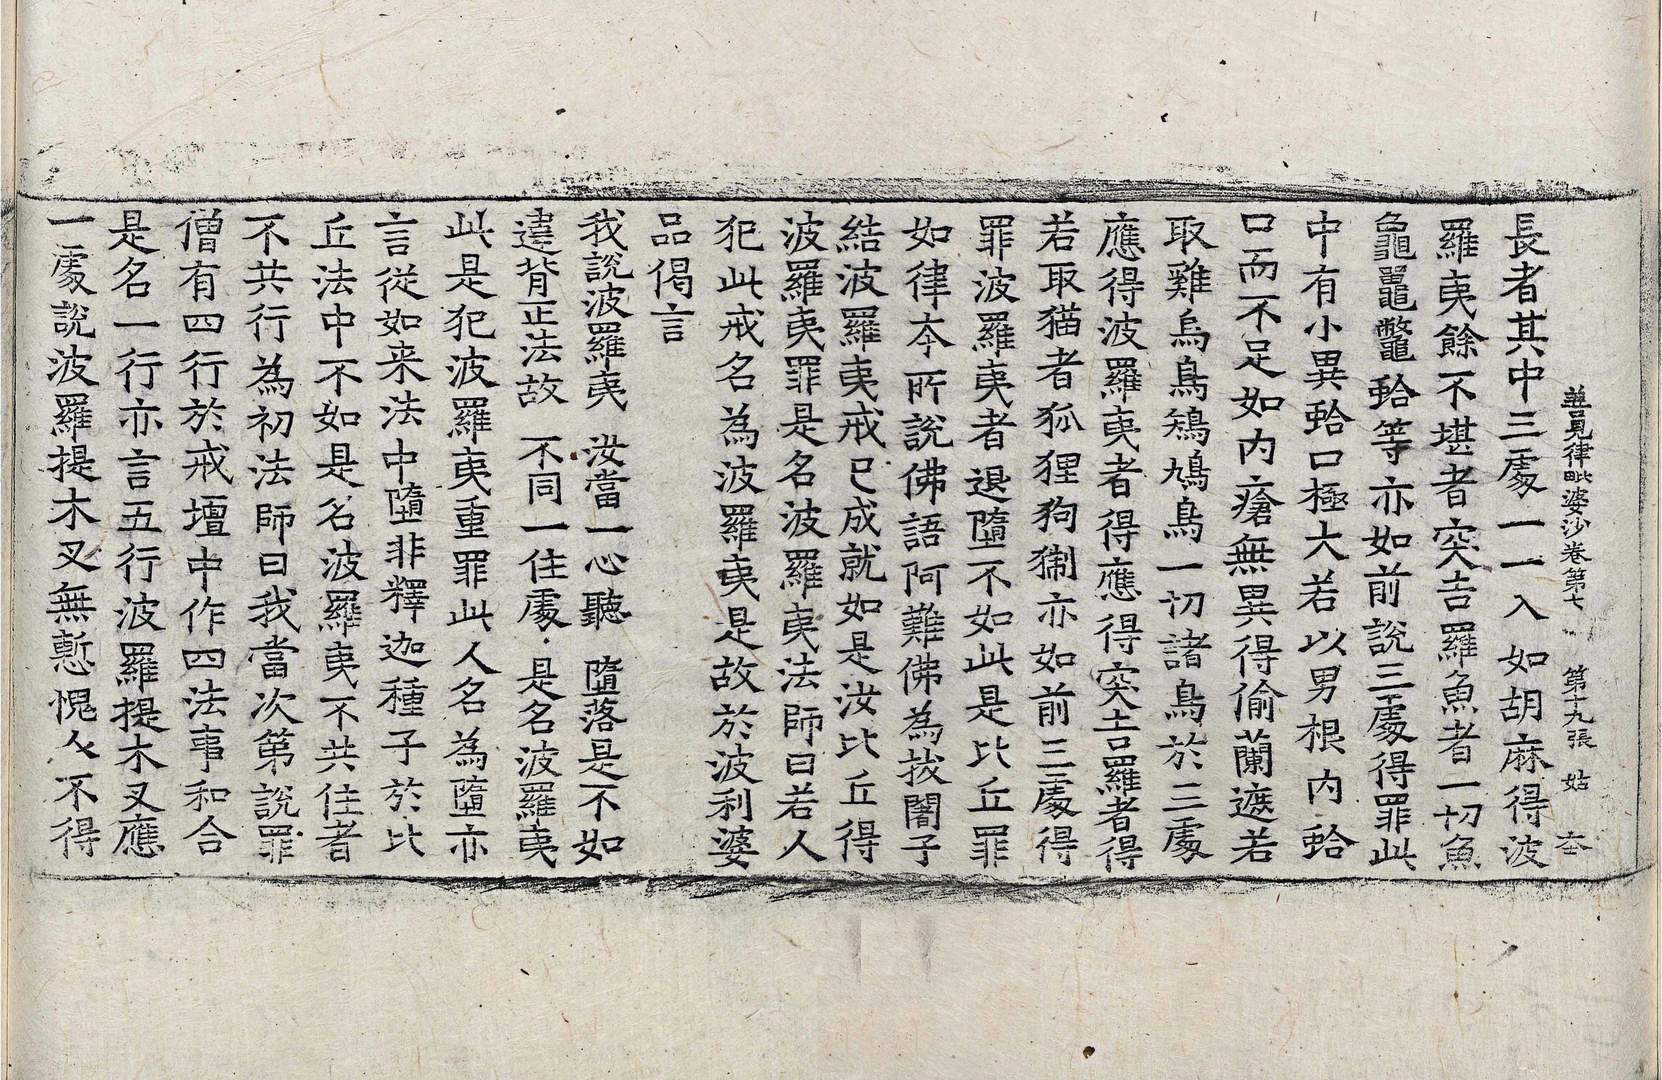 善見律毗婆沙卷第七 第十九張 姑
長者其中三處一一入如胡麻得波
羅夷餘不堪者突吉羅魚者一切魚
龜鼉鼈蛤等亦如前說三處得罪此
中有小異蛤口極大若以男根內蛤
口而不足如內瘡無異得偷蘭遮若
取雞烏鳥鵄鳩鳥一切諸鳥於三處
應得波羅夷者得應得突吉羅者得
若取猫者狐狸狗獺亦如前三處得
罪波羅夷者退墮不如此是比丘罪
如律夲所說佛語阿難佛為拔闍子
結波羅夷戒已成就如是汝比丘得
波羅夷罪是名波羅夷法師曰若人
犯此戒名為波羅夷是故於波利婆
品偈言
我說波羅夷 汝當一心聽 墮落是不如
違背正法故 不同一住處 是名波羅夷
此是犯波羅夷重罪此人名為墮亦
言從如来法中墮非釋迦種子於比
丘法中不如是名波羅夷不共住者
不共行為初法師曰我當次第說罪
僧有四行於戒壇中作四法事和合
是名一行亦言五行波羅提木叉應
一處說波羅提木叉無慙愧人不得